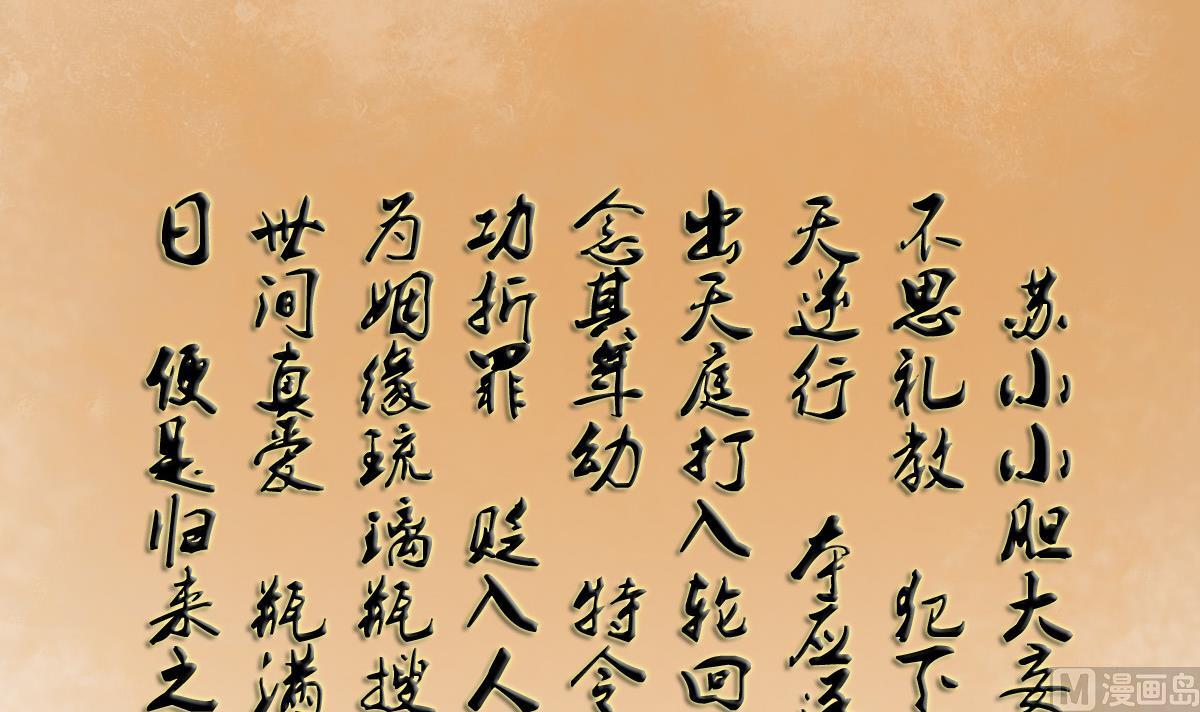 苏小小胆大妄
不思礼教 犯下
天逆行 本应逐
出天庭打入轮回
念其年幼 特令
功折罪 贬入人
为姻缘琉璃瓶搜
世间真爱 瓶满
日 便是归来之
漫画岛